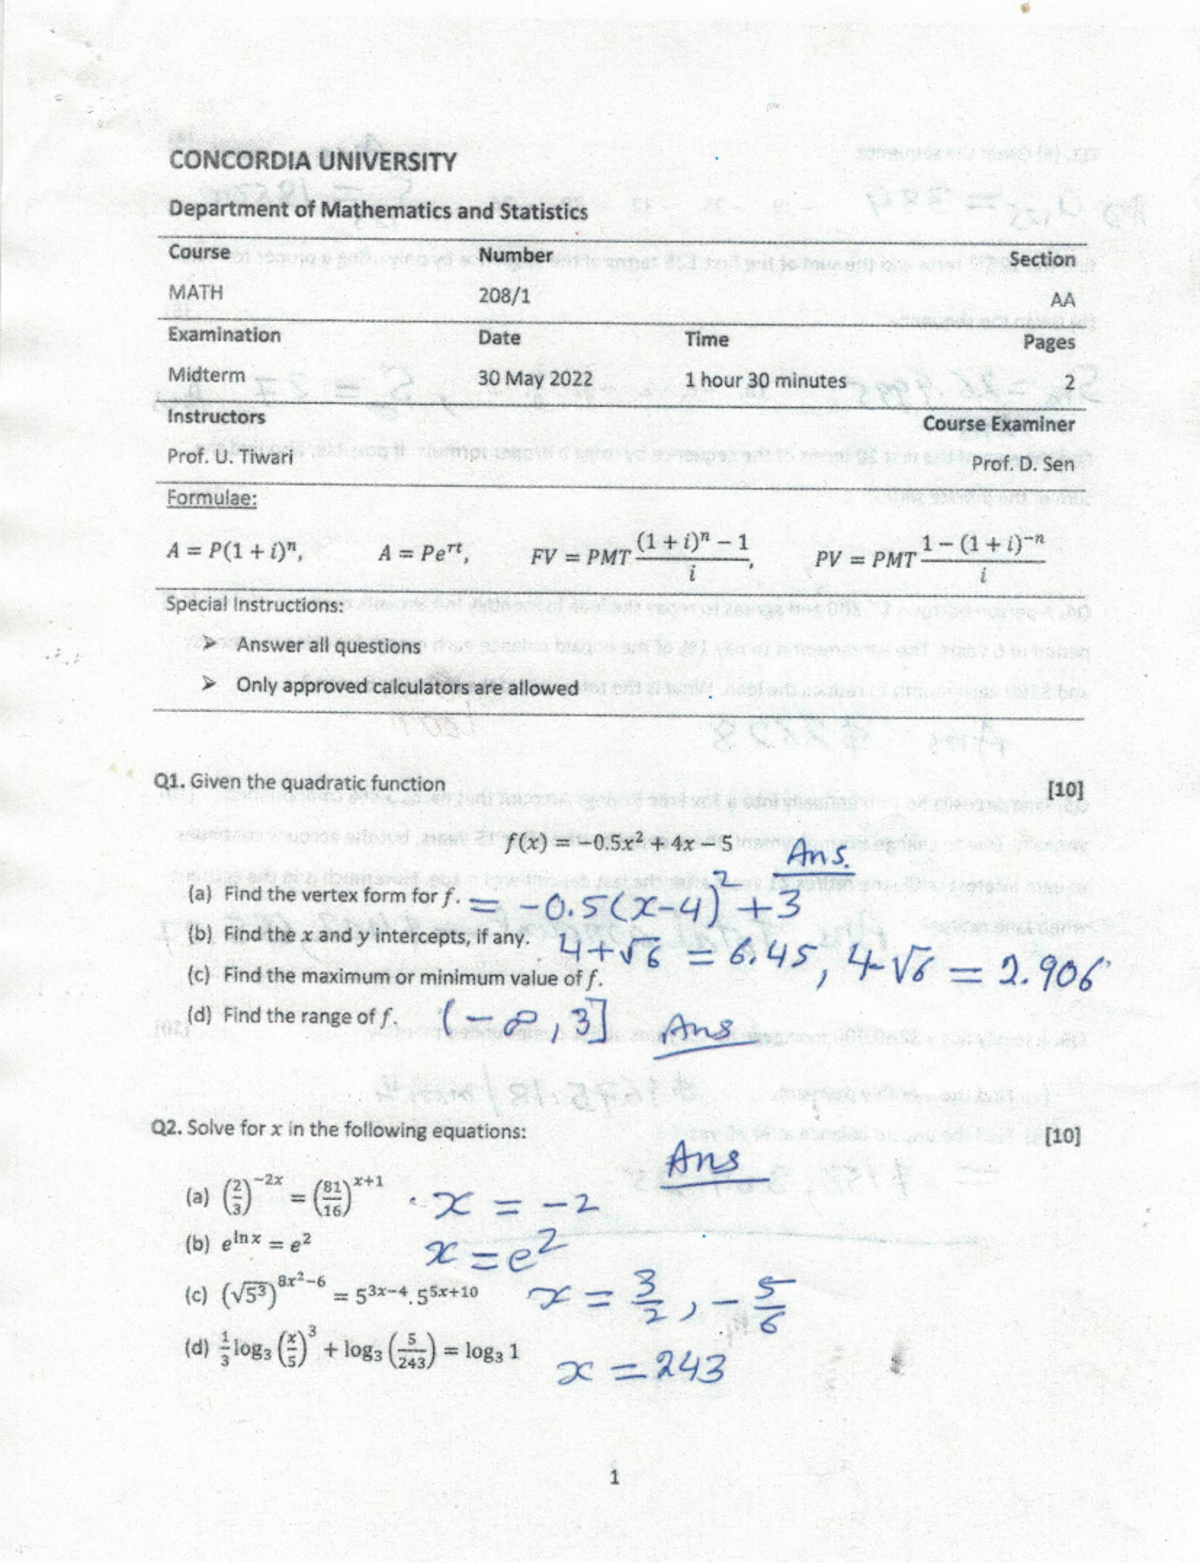 CONCORDIA UNIVERSITY
Department of Mathematics and Statistics
Course Number Section
MATH 208/1 AA
Examination Date Time Pages
Midterm 30 May 2022 1 hour 30 minutes 2
Instructors Course Examiner
Prof. U. Tiwari Prof. D. Sen
Formulae:
A = P(1 + i)ⁿ, A = Peʳᵗ, FV = PMT ((1 + i)ⁿ − 1)/i, PV = PMT (1 − (1 + i)⁻ⁿ)/i
Special Instructions:
➢ Answer all questions
➢ Only approved calculators are allowed
Q1. Given the quadratic function [10]
f(x) = −0.5x² + 4x − 5 Ans.
(a) Find the vertex form for f. = −0.5(x−4)² + 3
(b) Find the x and y intercepts, if any. 4+√6 = 6.45, 4-√6 = 2.906
(c) Find the maximum or minimum value of f.
(d) Find the range of f. (−∞, 3] Ans
Q2. Solve for x in the following equations: [10]
Ans
(a) (2/3)^(−2x) = (81/16)^(x+1) x = −2
(b) e^(ln x) = e² x = e²
(c) (√5³)^(8x²−6) = 5^(3x−4).5^(5x+10) x = 3/2, −5/6
(d) 1/3 log₃ (x/5)³ + log₃ (5/243) = log₃ 1 x = 243
1